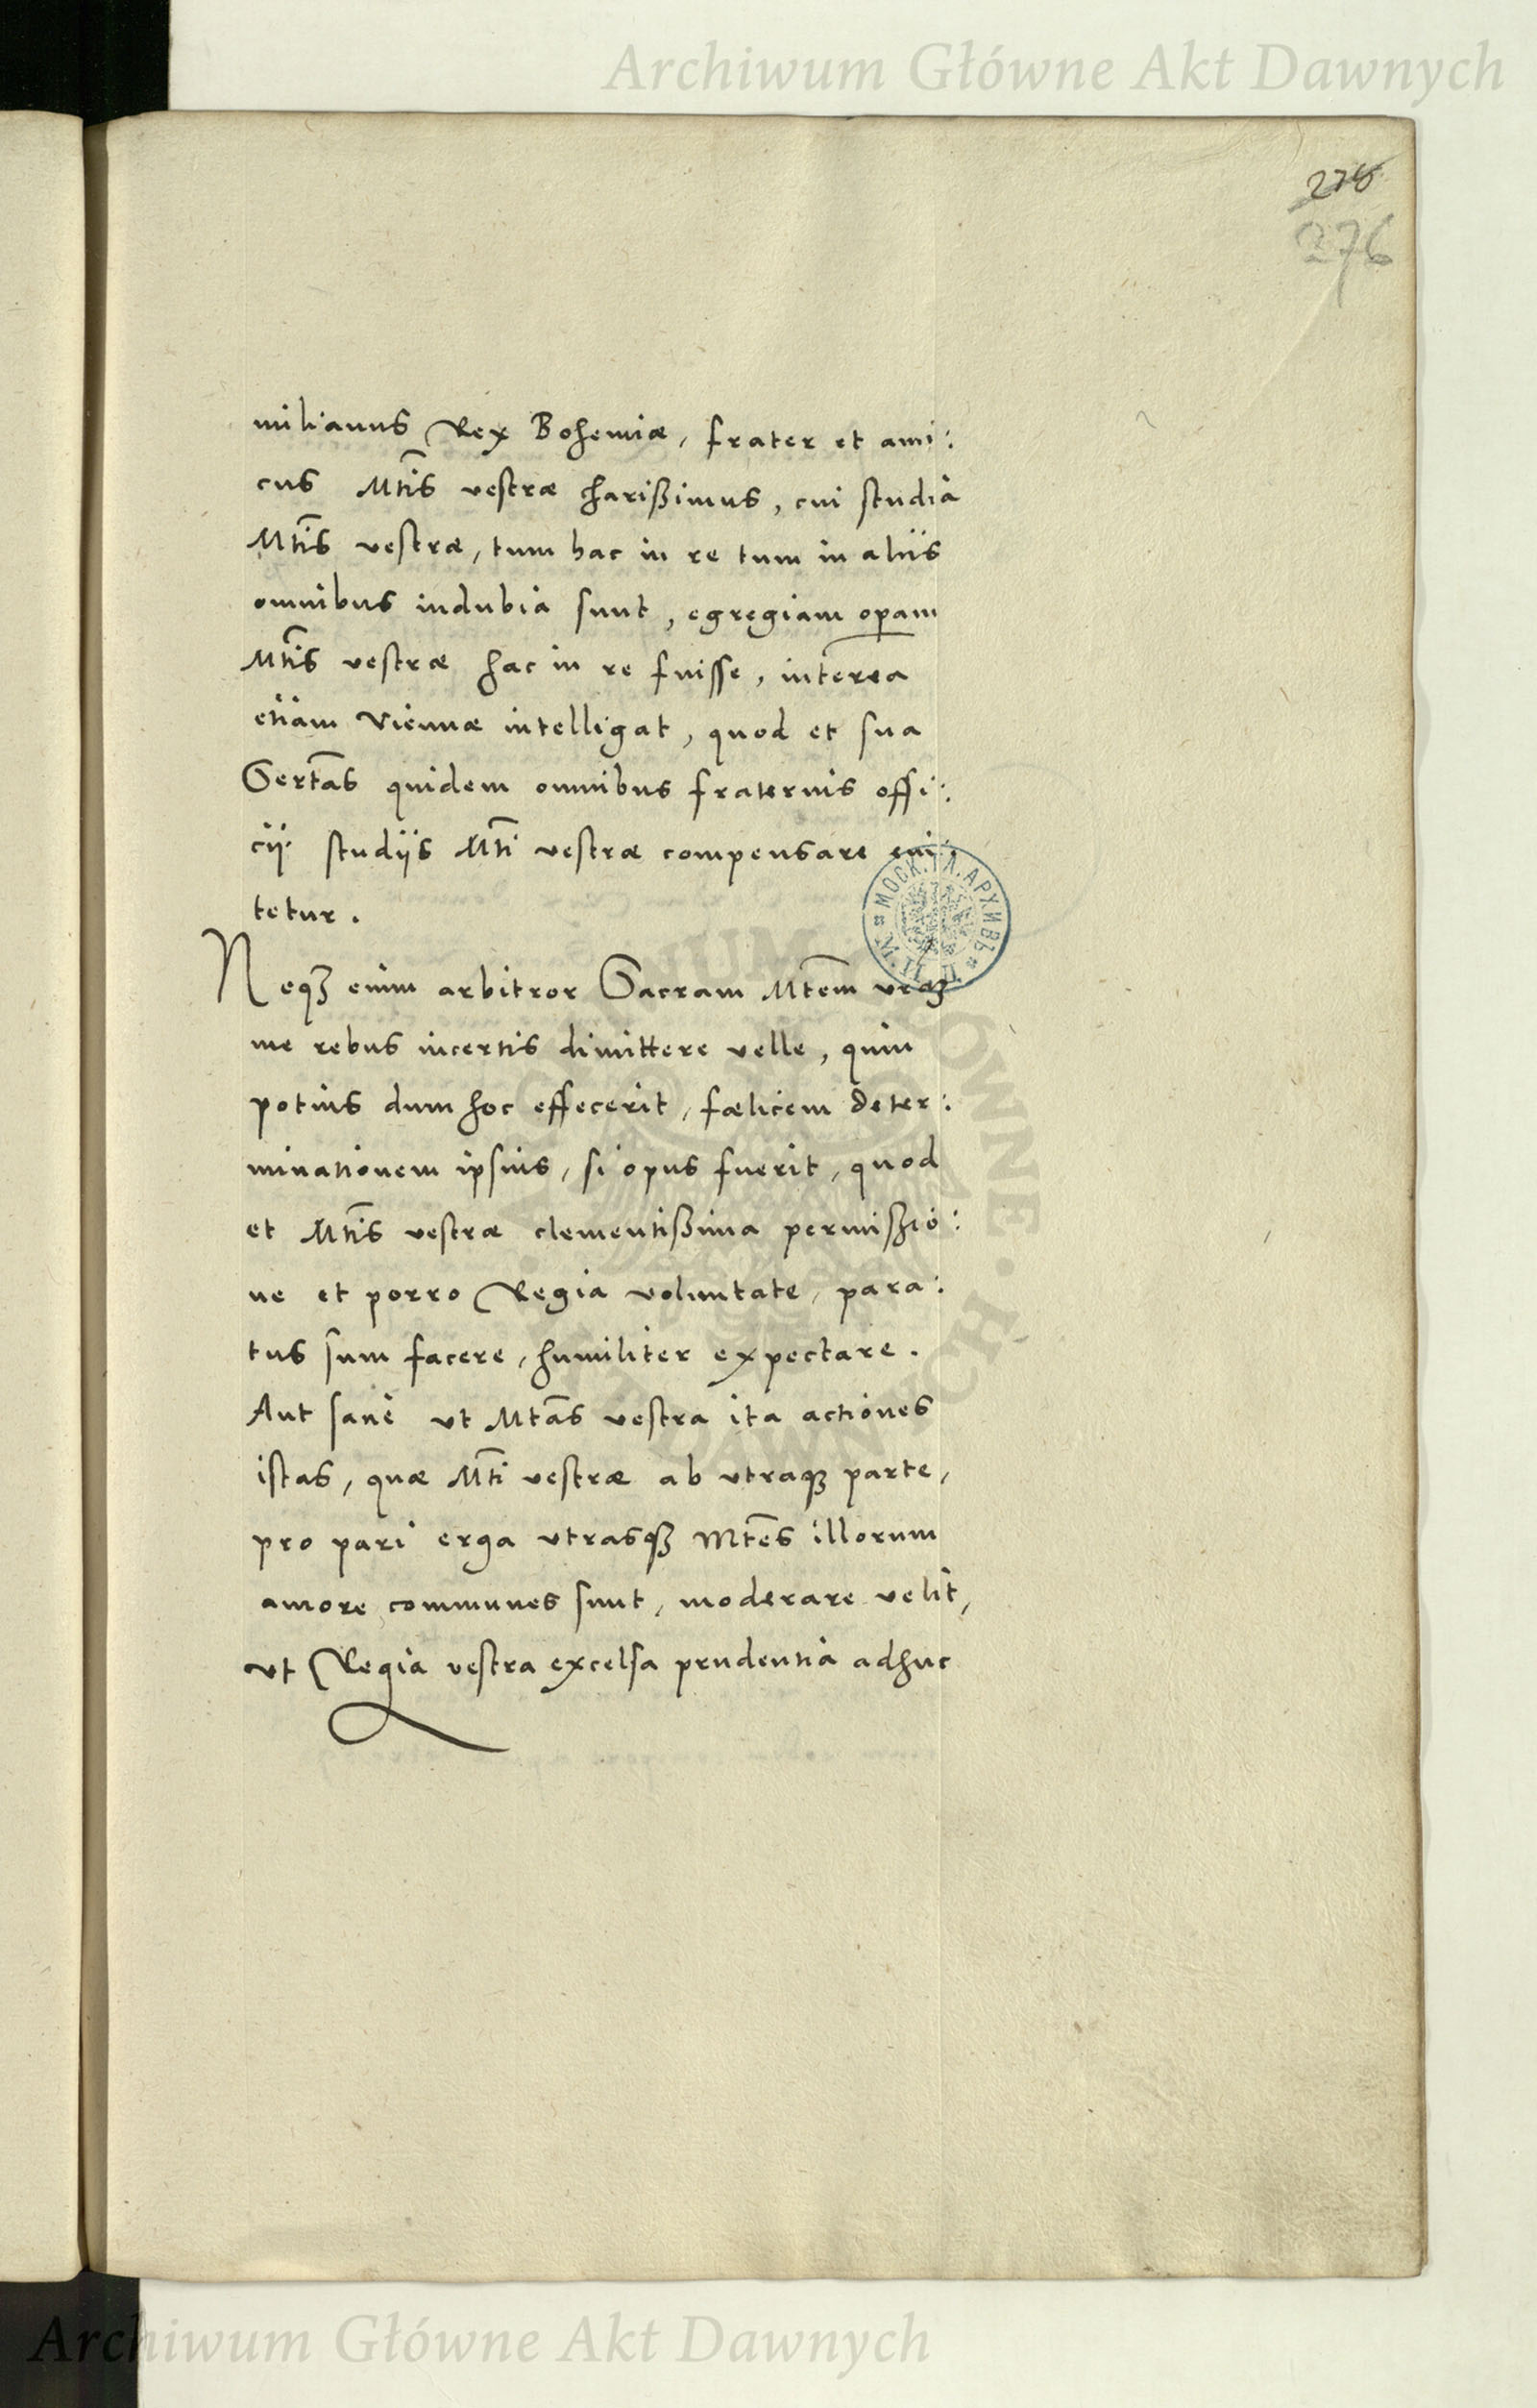 Archiwum Główne Akt Dawnych
276
milianus Rex Bohemiæ, frater et ami:
cus Mtis vestræ charißimus, cui studia
Mtis vestræ, tum hac in re tum in aliis
omnibus indubia sunt, egregiam operam
Mtis vestræ hac in re fuisse, interea
etiam Viennæ intelligat, quod et sua
Sertas quidem omnibus fraternis offi:
cij studijs Mti vestræ compensare eni:
tetur.
Neqʒ enim arbitror Sacram Mtem vraʒ
me rebus incertis dimittere velle, quin
potius dum hoc effecerit, fœlicem deter:
minationem ipsius, si opus fuerit, quod
et Mtis vestræ clementißima permißio:
ne et porro Regia voluntate, para:
tus sum facere, humiliter expectare.
Aut sanè ut Mtas vestra ita actiones
istas, quæ Mti vestræ ab utraqʒ parte,
pro pari erga utrasqʒ Mtes illorum
amore communes sunt, moderare velit,
ut Regia vestra excelsa prudentia adhuc
МОСК. ГЛ. АРХИВЪ
Archiwum Główne Akt Dawnych